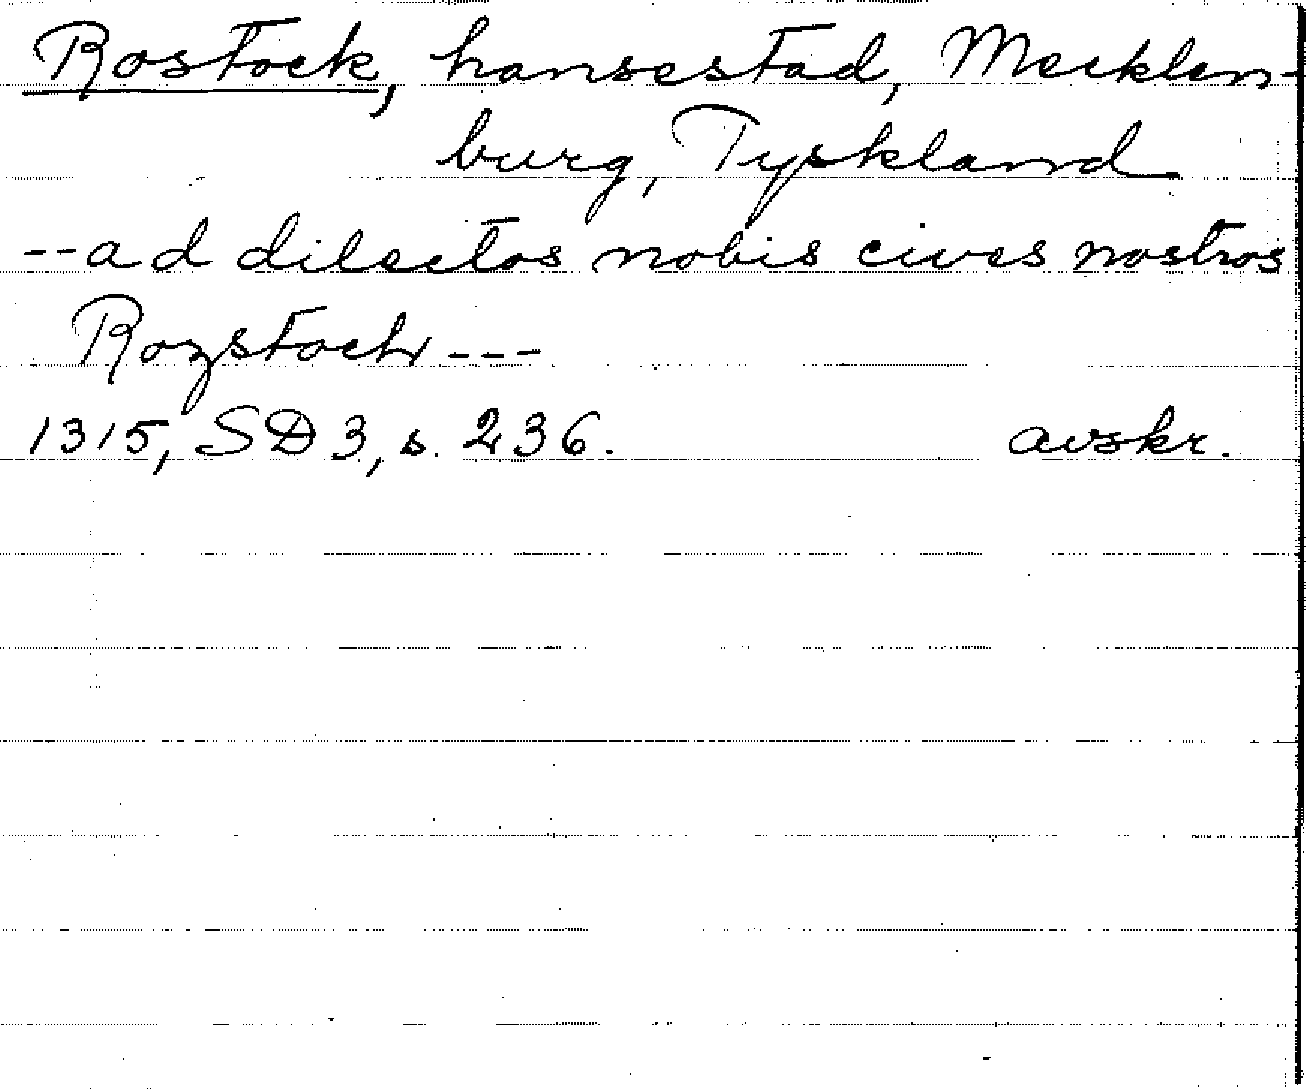 Rostock, hansestad, Mecklen-
burg, Tyskland
--ad dilectos nobis cives nostros
Rozstoch---
1315, SD 3, s. 236. avskr.